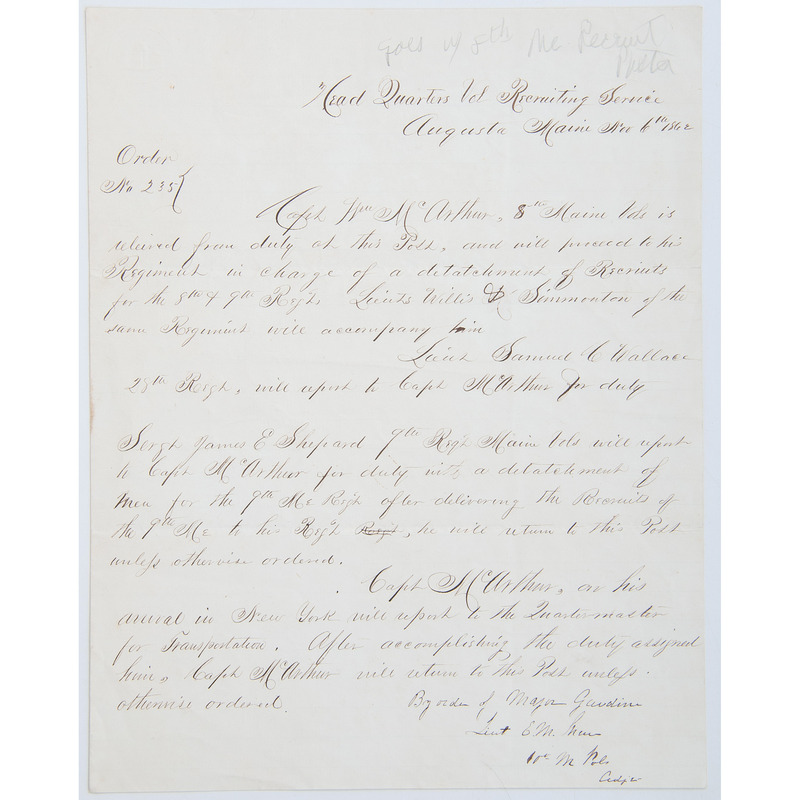 goes w/ 8th Me Recruit
Poster
Head Quarters Vol Recruiting Service
Augusta Maine Nov 6th 1862
Order
No 235
Capt Wm McArthur, 8th Maine Vols is
releived from duty at this Post, and will proceed to his
Regiment in charge of a detatchement of Recruits
for the 8th & 9th Regts. Lieuts Willis & Simmonton of the
same Regiment will accompany him
Lieut Samuel C Wallace
28th Regt, will report to Capt McArthur for duty
Sergt James E Shepard 9th Regt Maine Vols will report
to Capt McArthur for duty with a detatchement of
men for the 9th Me Regt after delivering the Recruits of
the 9th Me to his Regt Regt, he will return to this Post
unless otherwise ordered.
Capt McArthur, on his
arrival in New York will report to the Quartermaster
for Transportation. After accomplishing the duty assigned
him, Capt McArthur will return to this Post unless
otherwise ordered.
By order of Major Gardiner
Lieut E M
10th M Vols